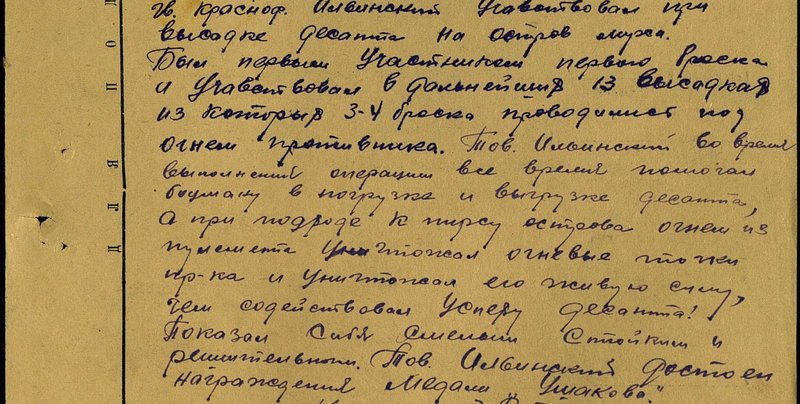 гв. Красноф. Ильвинский учавствовал при
высадке десанта на остров муха.
Был первым участником первого броска
и учавствовал в дальнейших 13 высадках
из которых 3-4 броска проводились под
огнем противника. Тов. Ильвинский во время
выполнения операции все время помогал
боцману в погрузке и выгрузке десанта,
а при подходе к пирсу острова огнем из
пулемета уничтожал огневые точки
пр-ка и уничтожал его живую силу,
чем содействовал успеху десанта!
Показал себя смелым стойким и
решительным. Тов. Ильвинский достоен
награждения медали „Ушакова".